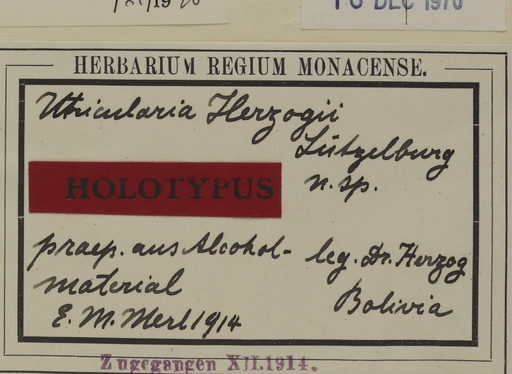 10 DEC 1970
HERBARIUM REGIUM MONACENSE.
Utricularia Herzogii
Lützelburg
n. sp.
HOLOTYPUS
praep. aus Alcohol-
material
E. M. Merl 1914
leg. Dr. Herzog
Bolivia
Zugegangen XII.1914.